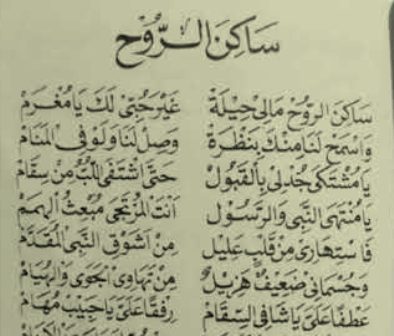 سَاكِنَ الرُّوْحِ
سَاكِنَ الرُّوْحِ مَالِيْ حِيْلَةْ غَيْرَ حُبِّيْ لَكَ يَا مُغْرَمْ
وَاسْمَحْ لَنَا مِنْكَ بِنَظْرَةْ وَصِلْ لَنَا وَلَوْ فِى الْمَنَامْ
يَا مُشْتَكَى جُدْلِيْ بِالْقَبُوْلْ حَتَّى اشْتَفَى اللُّبُّ مِنْ سِقَامْ
يَا مُنْتَهَى النَّبِى وَالرَّسُوْلْ اَنْتَ الْمُرْتَجَى مُبْعِثُ الْهِمَمْ
فَاسْتِهَارِيْ مِنْ قَلْبٍ عَلِيْلْ مِنْ اَشْوَقِ النَّبِى الْمُقَدَّمْ
وَجُسْمَانِيْ ضَعِيْفٌ هَزِيْلٌ مِنْ تَهَاوِى الْجَوَى وَالْهُيَامْ
عَطْفًا عَلَيَّ يَا شَافِيَ السَّقَامْ رِفْقًا عَلَيَّ يَا حَبِيْبْ مُهَامْ